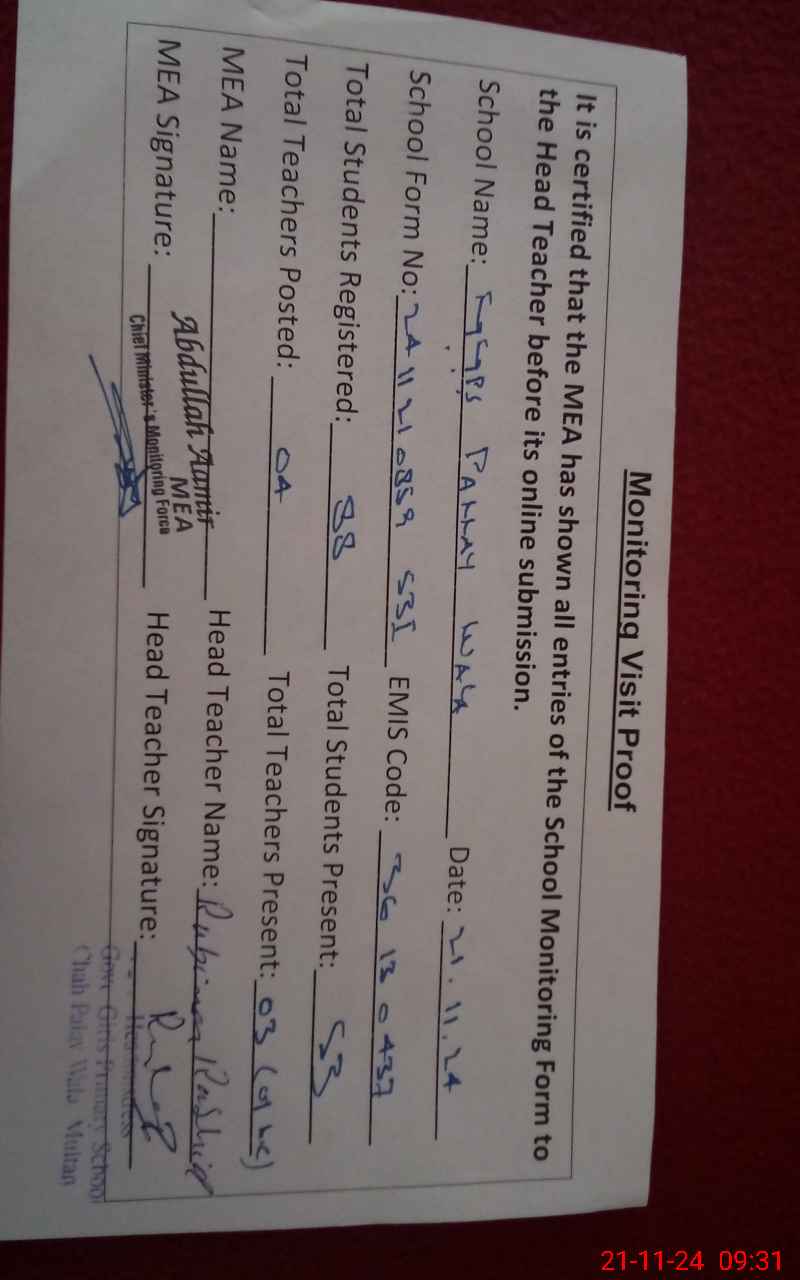 Monitoring Visit Proof
It is certified that the MEA has shown all entries of the School Monitoring Form to
the Head Teacher before its online submission.
School Name: PAKKAY WALA Date: 21.11.24
School Form No: 2411210859 531 EMIS Code: 36130437
Total Students Registered: 88 Total Students Present: 53
Total Teachers Posted: 04 Total Teachers Present: 03
MEA Name: Abdullah Aamir Head Teacher Name: Rubina Rashid
MEA
MEA Signature: Chief Minister's Monitoring Force Head Teacher Signature:
Headmistress
Govt. Girls Primary School
Chah Wala Multan
21-11-24 09:31